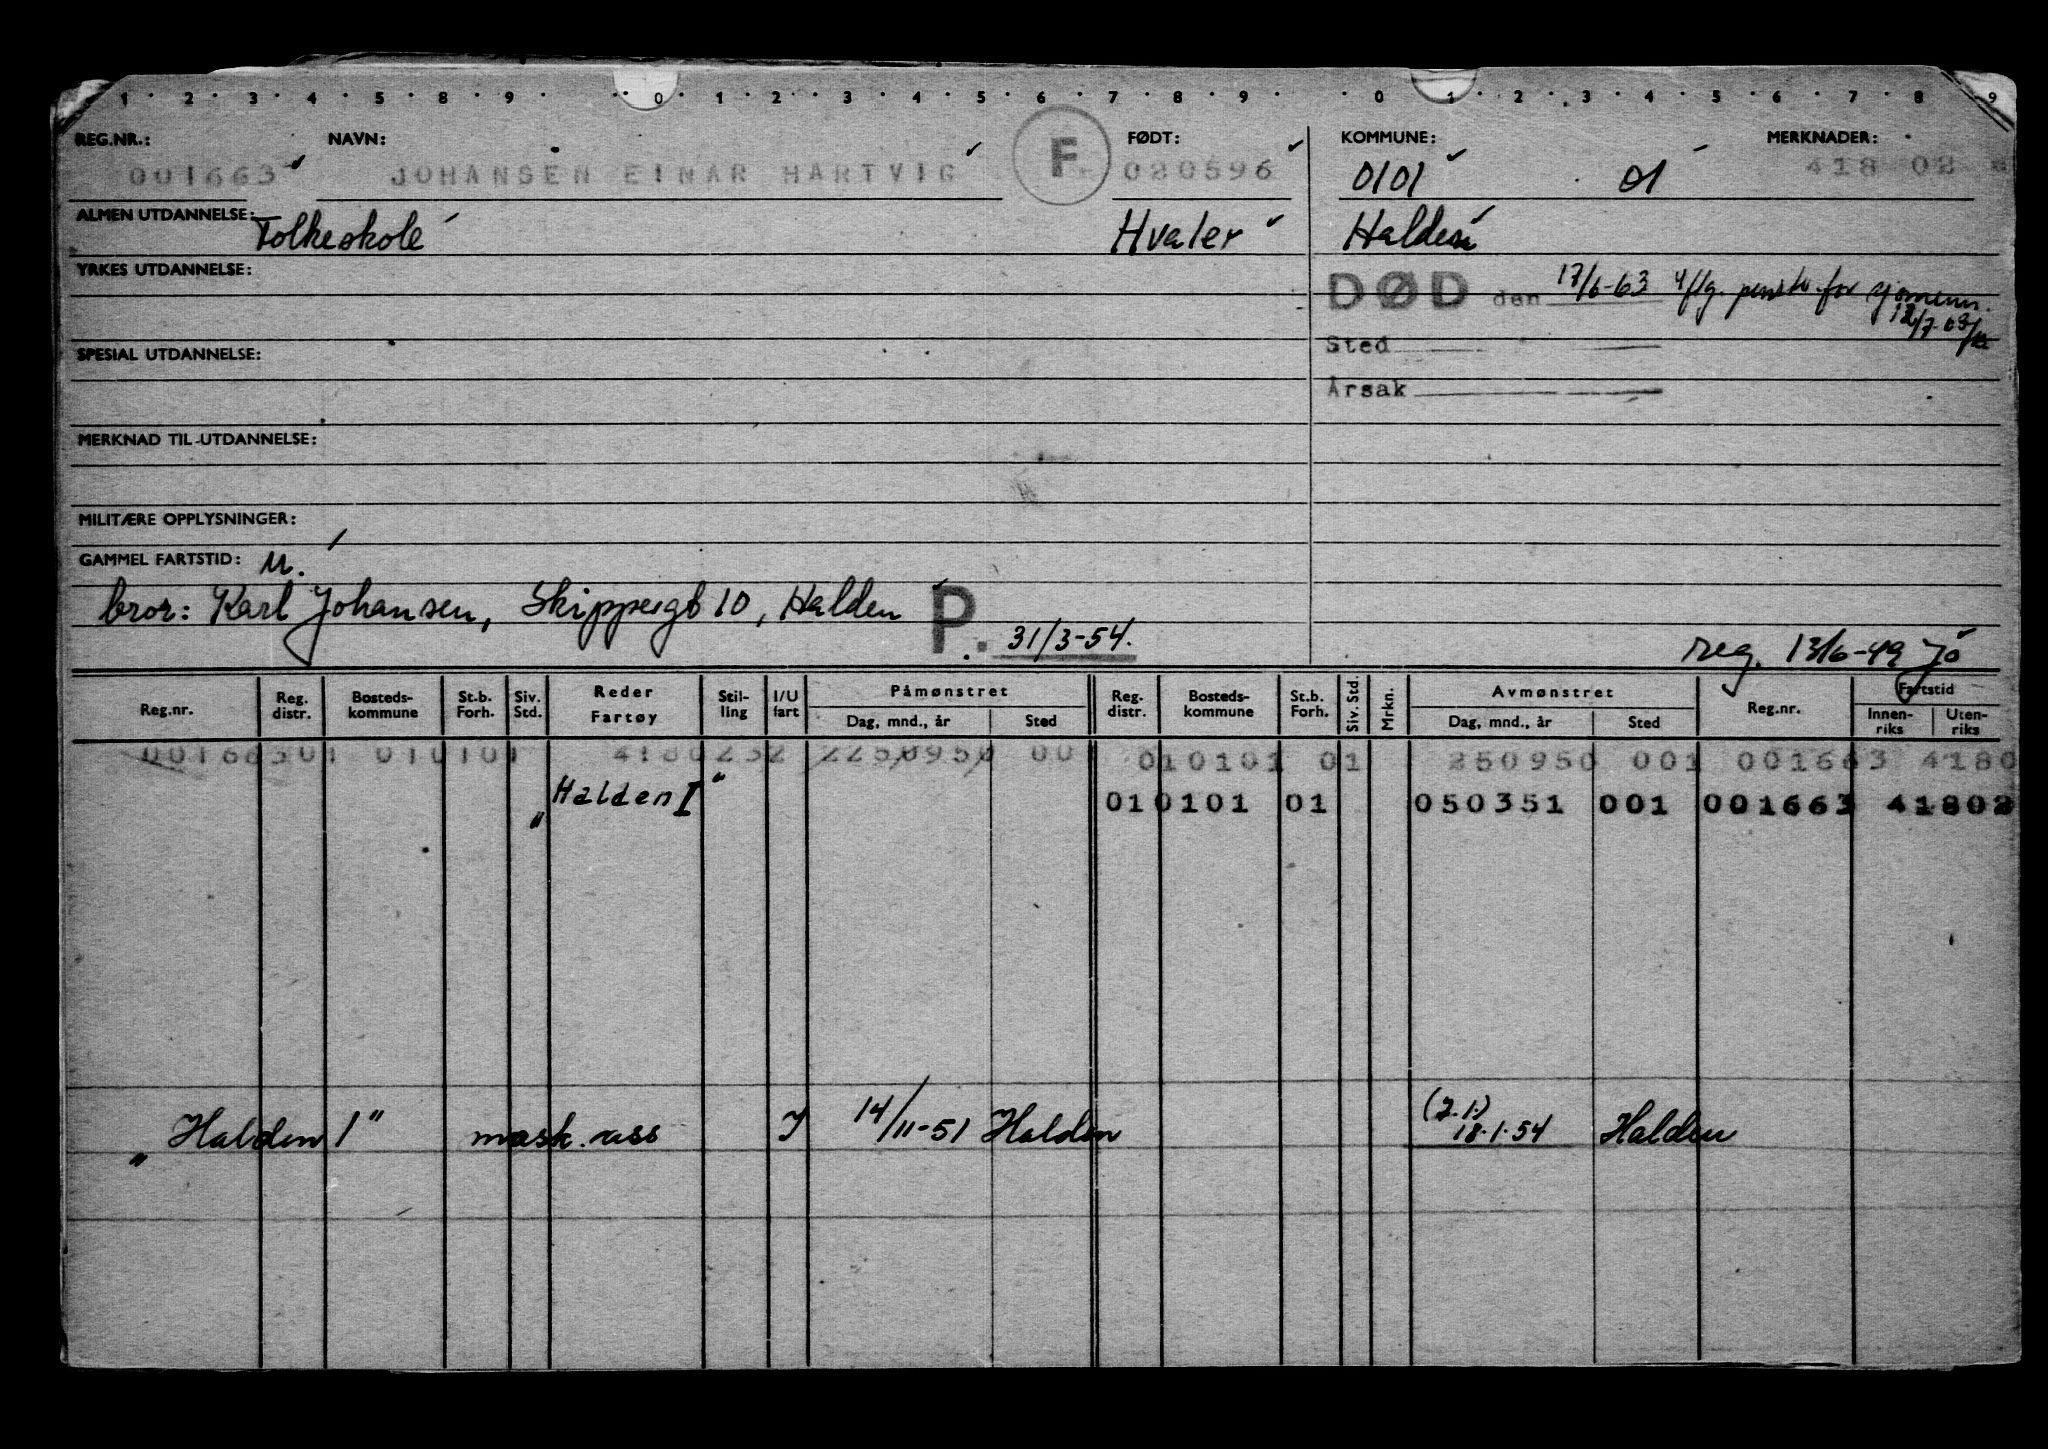 1 2 3 4 5 8 9 0 1 2 3 4 5 6 7 8 9 0 1 2 3 4 5 6 7 8 9
REG.NR.: NAVN: FØDT: KOMMUNE: MERKNADER:
001663 JOHANSEN EINAR HARTVIG F 020596 0101 01 418 02
ALMEN UTDANNELSE: Folkeskole Hvaler Halden
YRKES UTDANNELSE:
DØD den 17/6-63 iflg. penstr. for sjømenn.
12/7-63
SPESIAL UTDANNELSE: Sted
Årsak
MERKNAD TIL UTDANNELSE:
MILITÆRE OPPLYSNINGER:
GAMMEL FARTSTID: M.
bror: Karl Johansen, Skippergt 10, Halden P. 31/3-54.
reg. 13/6-49 Jo
Reg.nr. Reg. distr. Bosteds-kommune St.b. Forh. Siv. Std. Reder Fartøy Stil-ling I/U fart Påmønstret Dag, mnd., år Sted Reg. distr. Bosteds-kommune St.b. Forh. Siv. Std. Mrkn. Avmønstret Dag, mnd., år Sted Reg.nr. Fartstid Innen-riks Uten-riks
00166301 010101 4180232 2250950 00 010101 01 250950 001 001663 4180
"Halden I" 010101 01 050351 001 001663 41802
"Halden I" mask. ass I 14/11-51 Halden (J.1.) 18.1.54 Halden